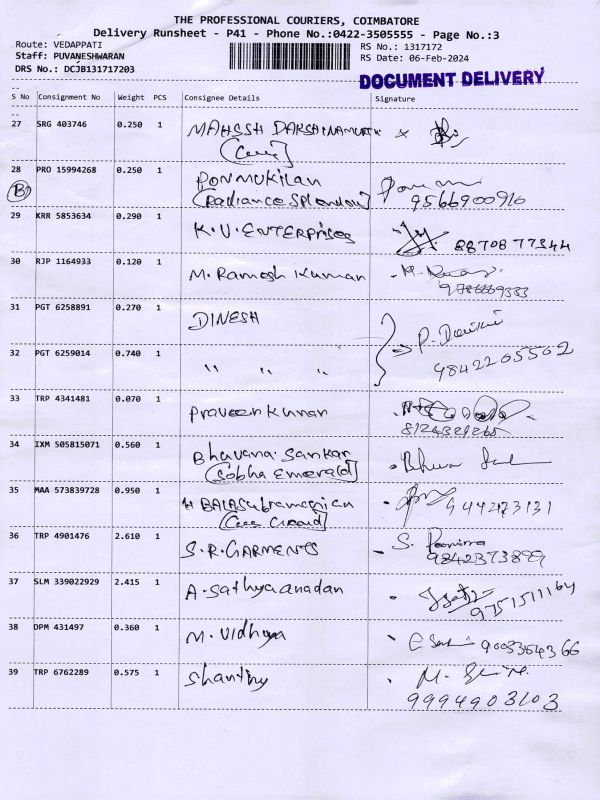 THE PROFESSIONAL COURIERS, COIMBATORE
Delivery Runsheet - P41 - Phone No.:0422-3505555 - Page No.:3
Route: VEDAPPATI
Staff: PUVANESHWARAN
DRS No.: DCJB131717203
RS No.: 1317172
RS Date: 06-Feb-2024
DOCUMENT DELIVERY
S No Consignment No Weight PCS Consignee Details Signature
27 SRG 403746 0.250 1 MAHESH DAKSHINAMURTH x
28 PRO 15994268 0.250 1 PONMUKILAN
(B) (Radiance Splendour) 9566900916
29 KRR 5853634 0.290 1 K.V. ENTERPRISES 8870877344
30 RJP 1164933 0.120 1 M. Ramesh Kumar
31 PGT 6258891 0.270 1 DINESH
32 PGT 6259014 0.740 1 " " " 9842265502
33 TRP 4341481 0.070 1 Praveen Kumar
34 IXM 505815071 0.560 1 Bhavana. Sankar
(Sobha Emerald)
35 MAA 573839728 0.950 1 BALASubramanian
36 TRP 4901476 2.610 1 S.R. GARMENTS S.
9842373899
37 SLM 339022929 2.415 1 A. Sathyaanadan
9751511164
38 DPM 431497 0.360 1 M. Vidhya
39 TRP 6762289 0.575 1 Shanthy
9994903103